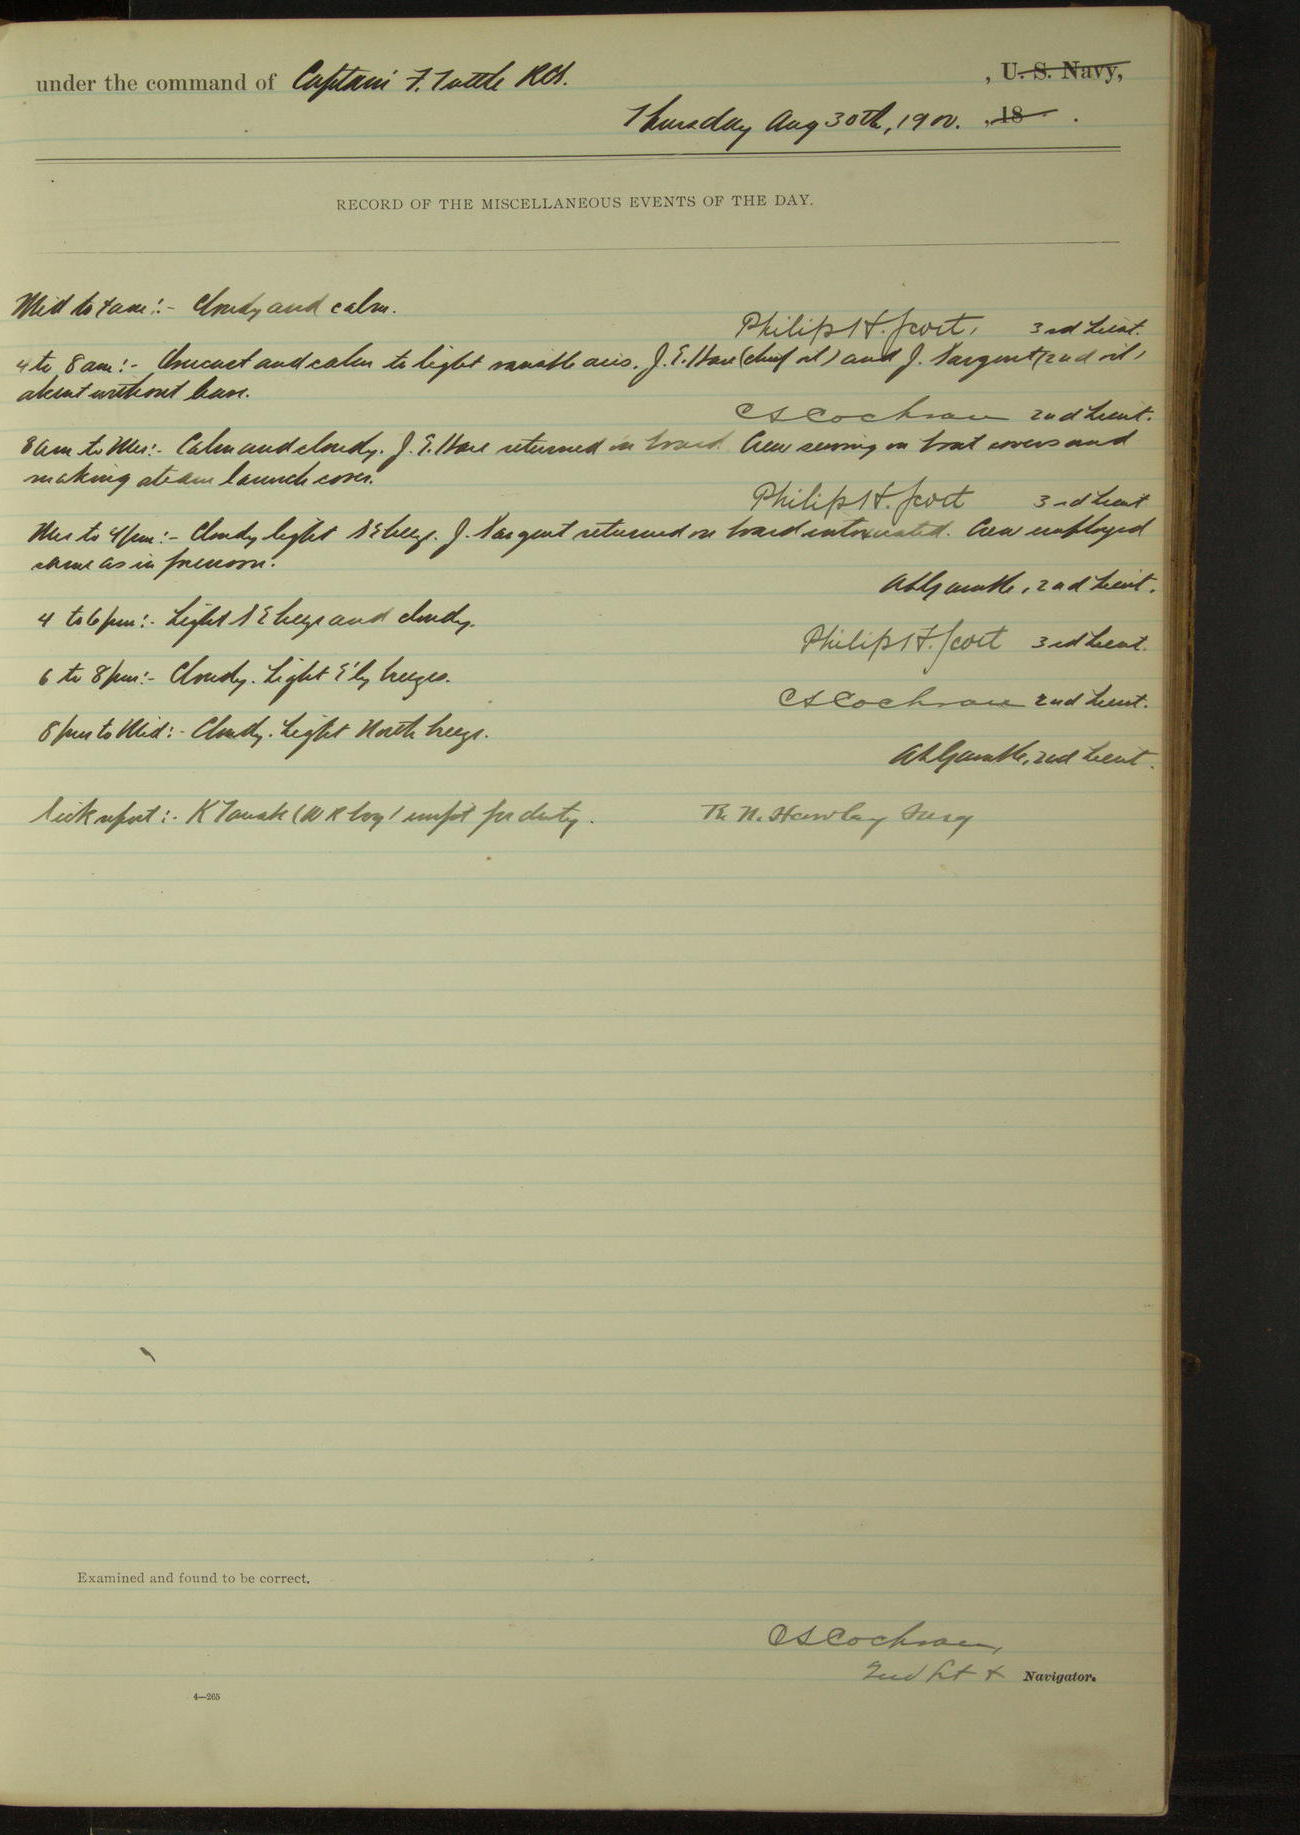 under the command of Captain F. Tuttle RCS. , U. S. Navy,
Thursday Aug 30th, 1900. , 18 .
RECORD OF THE MISCELLANEOUS EVENTS OF THE DAY.
Mid to 4 am:- Cloudy and calm.
Philip H. Scott, 3rd Lieut.
4 to 8 am:- Overcast and calm to light variable airs. J. E. Hare (chief oil) and J. Sargent (2nd oil)
absent without leave.
C S Cochran 2nd Lieut.
8 am to Mer:- Calm and cloudy. J. E. Hare returned on board. Crew sewing on boat covers and
making steam launch cover.
Philip H. Scott 3rd Lieut
Mer to 4 pm:- Cloudy light SE breeze. J. Sargent returned on board intoxicated. Crew employed
same as in forenoon.
A L Gamble, 2nd Lieut.
4 to 6 pm:- Light S E breeze and cloudy.
Philip H. Scott 3rd Lieut.
6 to 8 pm:- Cloudy. Light E'ly breezes.
C S Cochran 2nd Lieut.
8 pm to Mid:- Cloudy. Light North breeze.
A L Gamble, 2nd Lieut.
Sick report:- K (W R boy) unfit for duty. R. N. Hawley Surg
Examined and found to be correct.
C S Cochran,
2nd Lt & Navigator.
4—265